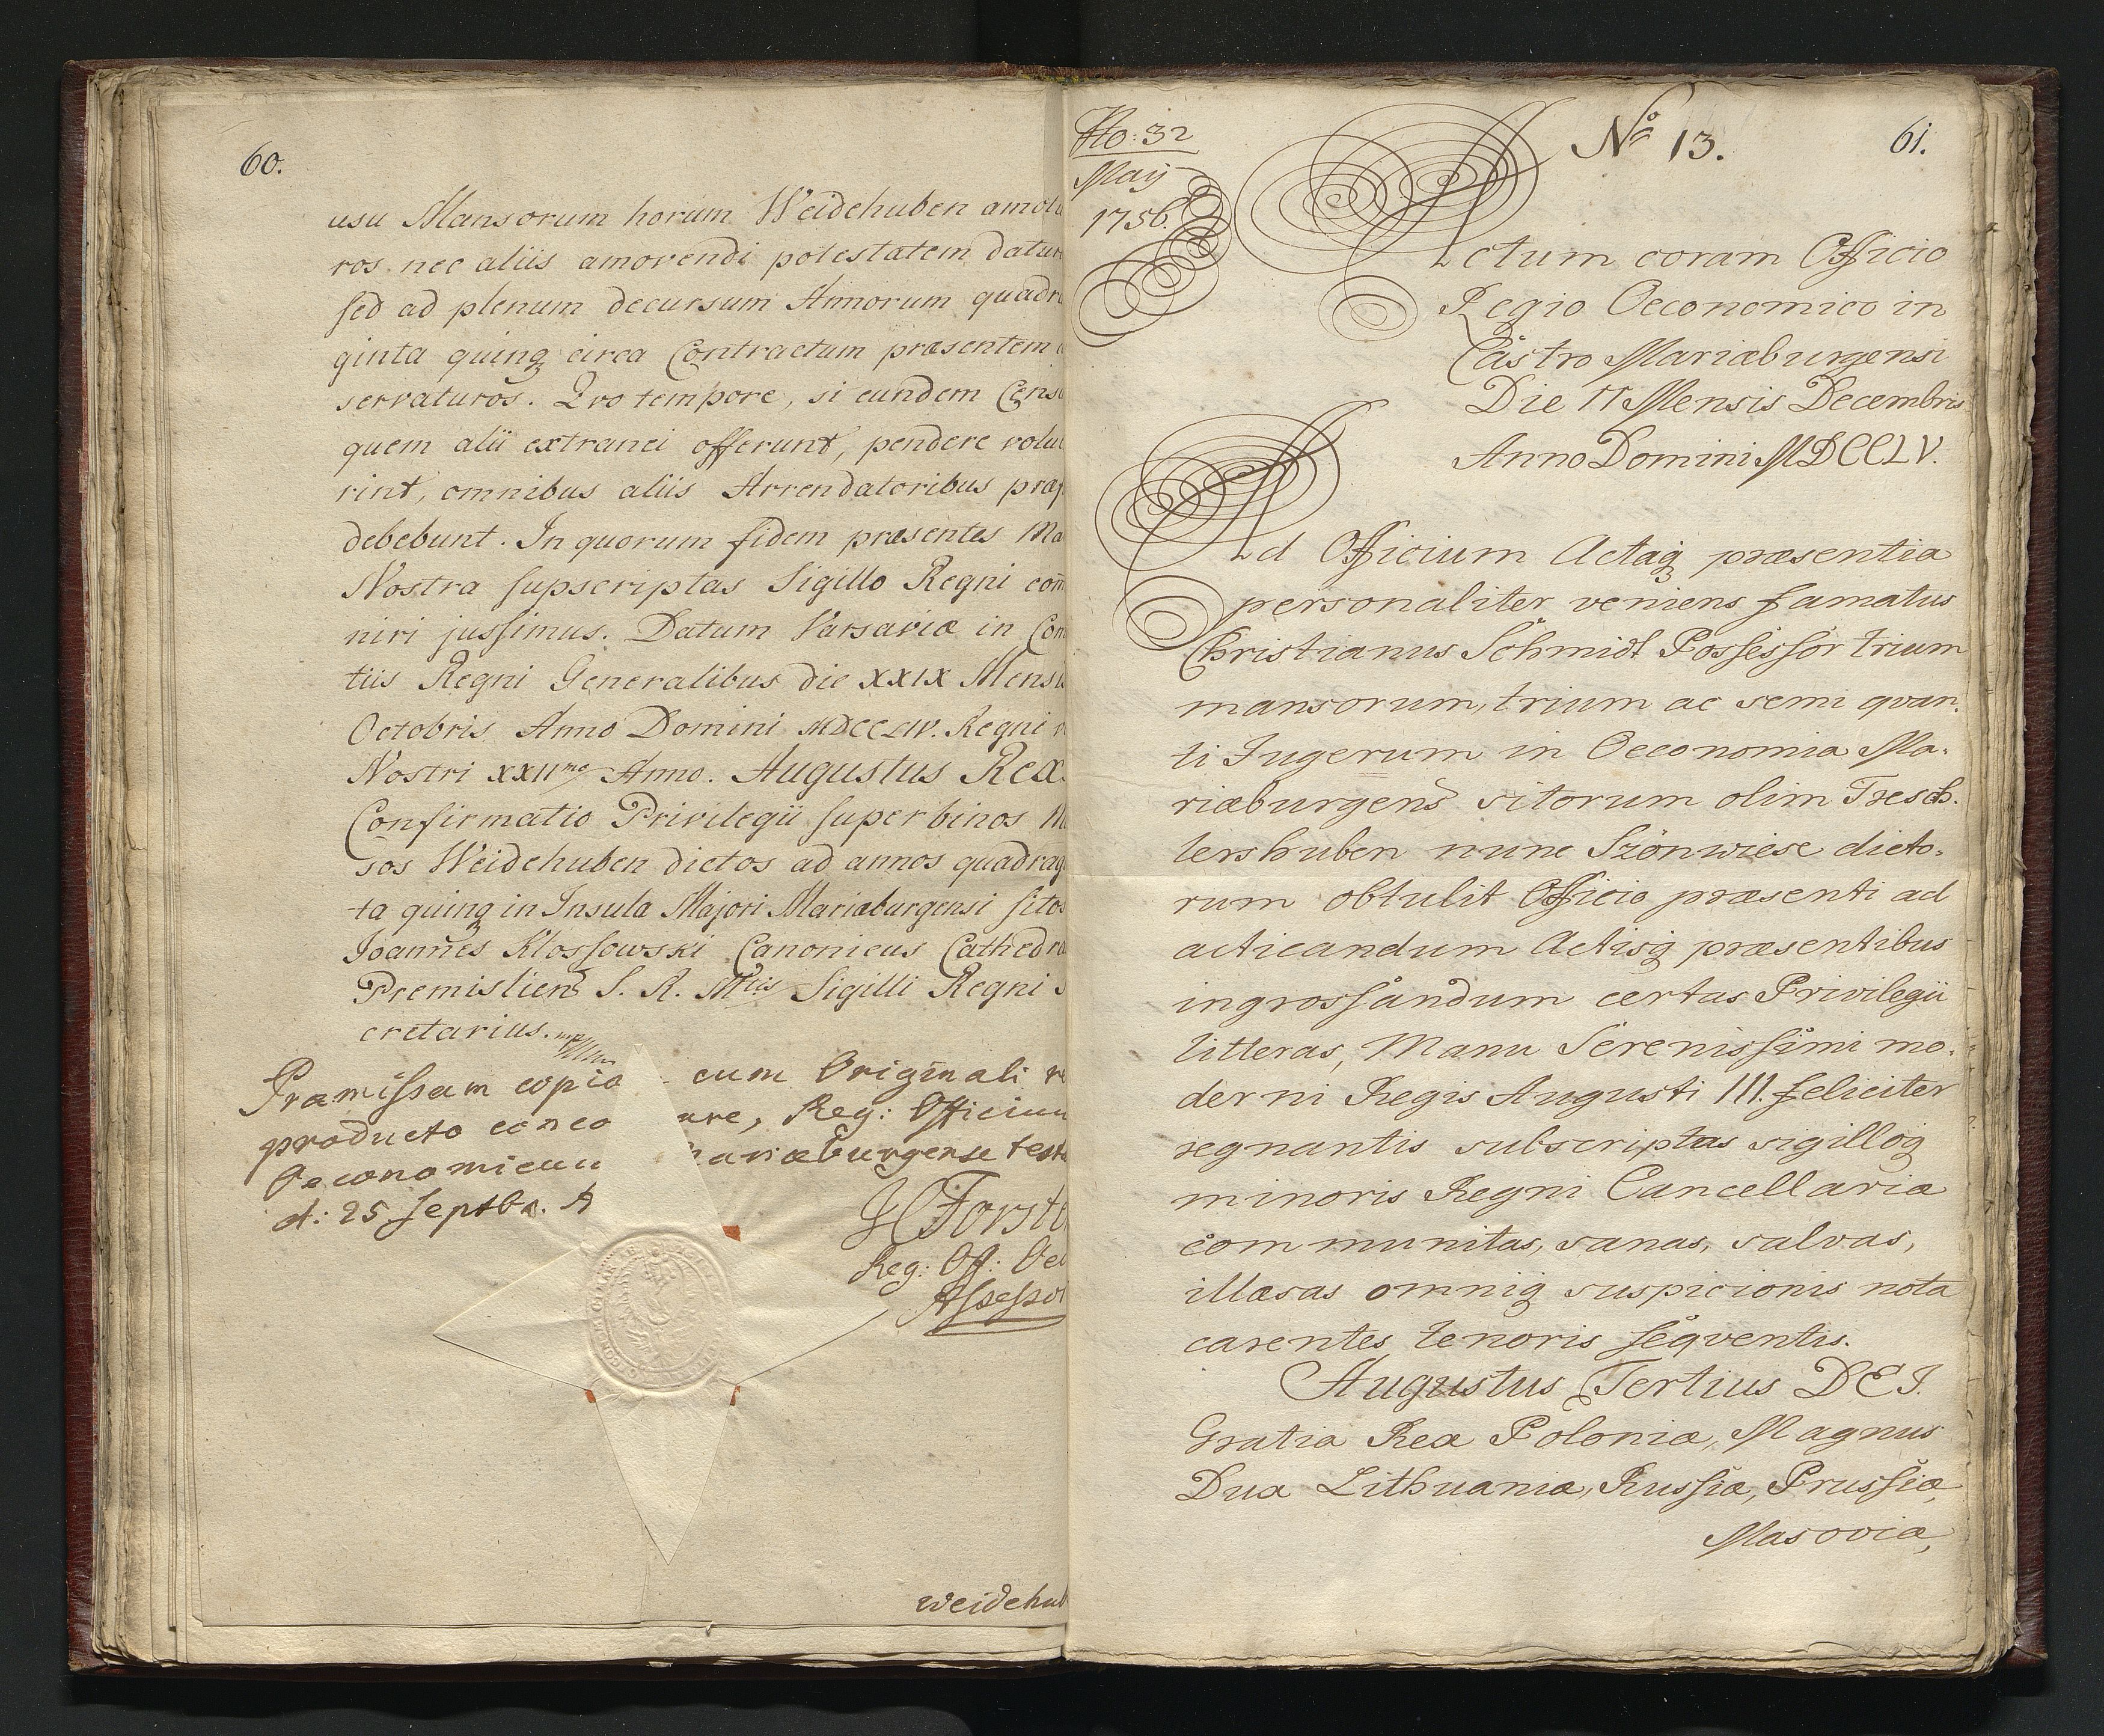 60.
usu Mansorum horum Weidehuben amotu
ros nec aliis amovendi potestatem datur
sed ad plenum decursum Annorum quadra
ginta quinq circa Contractum præsentem
servaturos. Quo tempore, si eundem Cens
quem alii extranei offerunt, pendere volu
rint, omnibus aliis Arrendatoribus præ
debebunt. In quorum fidem præsentes Ma
Nostra supscriptas Sigillo Regni com
niri jussimus. Datum Varsaviæ in Com
tiis Regni Generalibus die XXIX Mensis
Octobris Anno Domini MDCCLIV. Regni
Nostri XXIImo Anno. Augustus Rex.
Confirmatio Privilegii super binos M
sos Weidehuben dictos ad annos quadrag
ta quinq in Insula Majori Mariæburgensi sitos
Joannes Klossowski Canonicus Cathedra
Premislien S. R. Mtis Sigilli Regni
cretarius. mp
Præmissam copia cum Originali
producto conco are, Reg: Officium
Oeconomicum ariæburgense test
d: 25 Septbr. A
Forste
Reg: Off: Oec
Assessor
Weidehub
No: 32
Maij
1756.
No 13.
61.
Actum coram Officio
Regio Oeconomico in
Castro Mariæburgensi
Die 17 Mensis Decembris
Anno Domini MDCCLV.
Ad Officium Actaq præsentia
personaliter veniens famatus
Christianus Schmidt Possessor trium
mansorum, trium ac semi qvan,
ti Jugerum in Oeconomia Ma,
riæburgens sitorum olim Tresch,
lershuben nunc Szönwiese dicto,
rum obtulit Officio præsenti ad
acticandum Actisq præsentibus
ingrossandum certas Privilegii
litteras, Manu Serenissimi mo,
derni Regis Augusti III. feliciter
regnantis subscriptas sigilloq
minoris Regni Cancellariæ
communitas, sanas, salvas,
illæsas omniq suspicionis nota
carentes tenoris seqventis.
Augustus Tertius DEI
Gratia Rex Poloniæ, Magnus
Dux Lithuaniæ, Russiæ, Prussiæ,
Masoviæ,